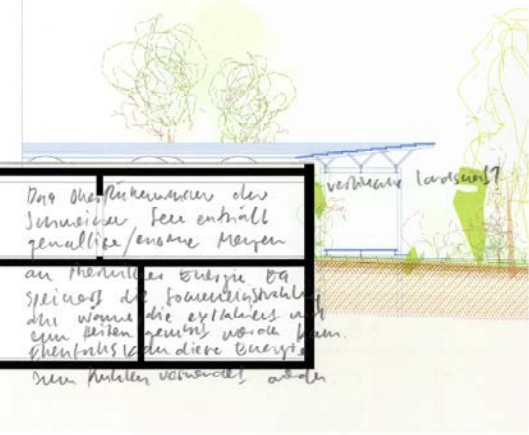 Das Oberflächenwasser der
Schweizer Seen enthält
gewaltige/enorme Mengen
an thermischer Energie. Es
speichert die Sonneneinstrahlung
als Wärme die extrahiert und
zum Heizen genutzt werden kann.
Ebenfalls kann diese Energie
zum Kühlen verwendet werden
landschaft?